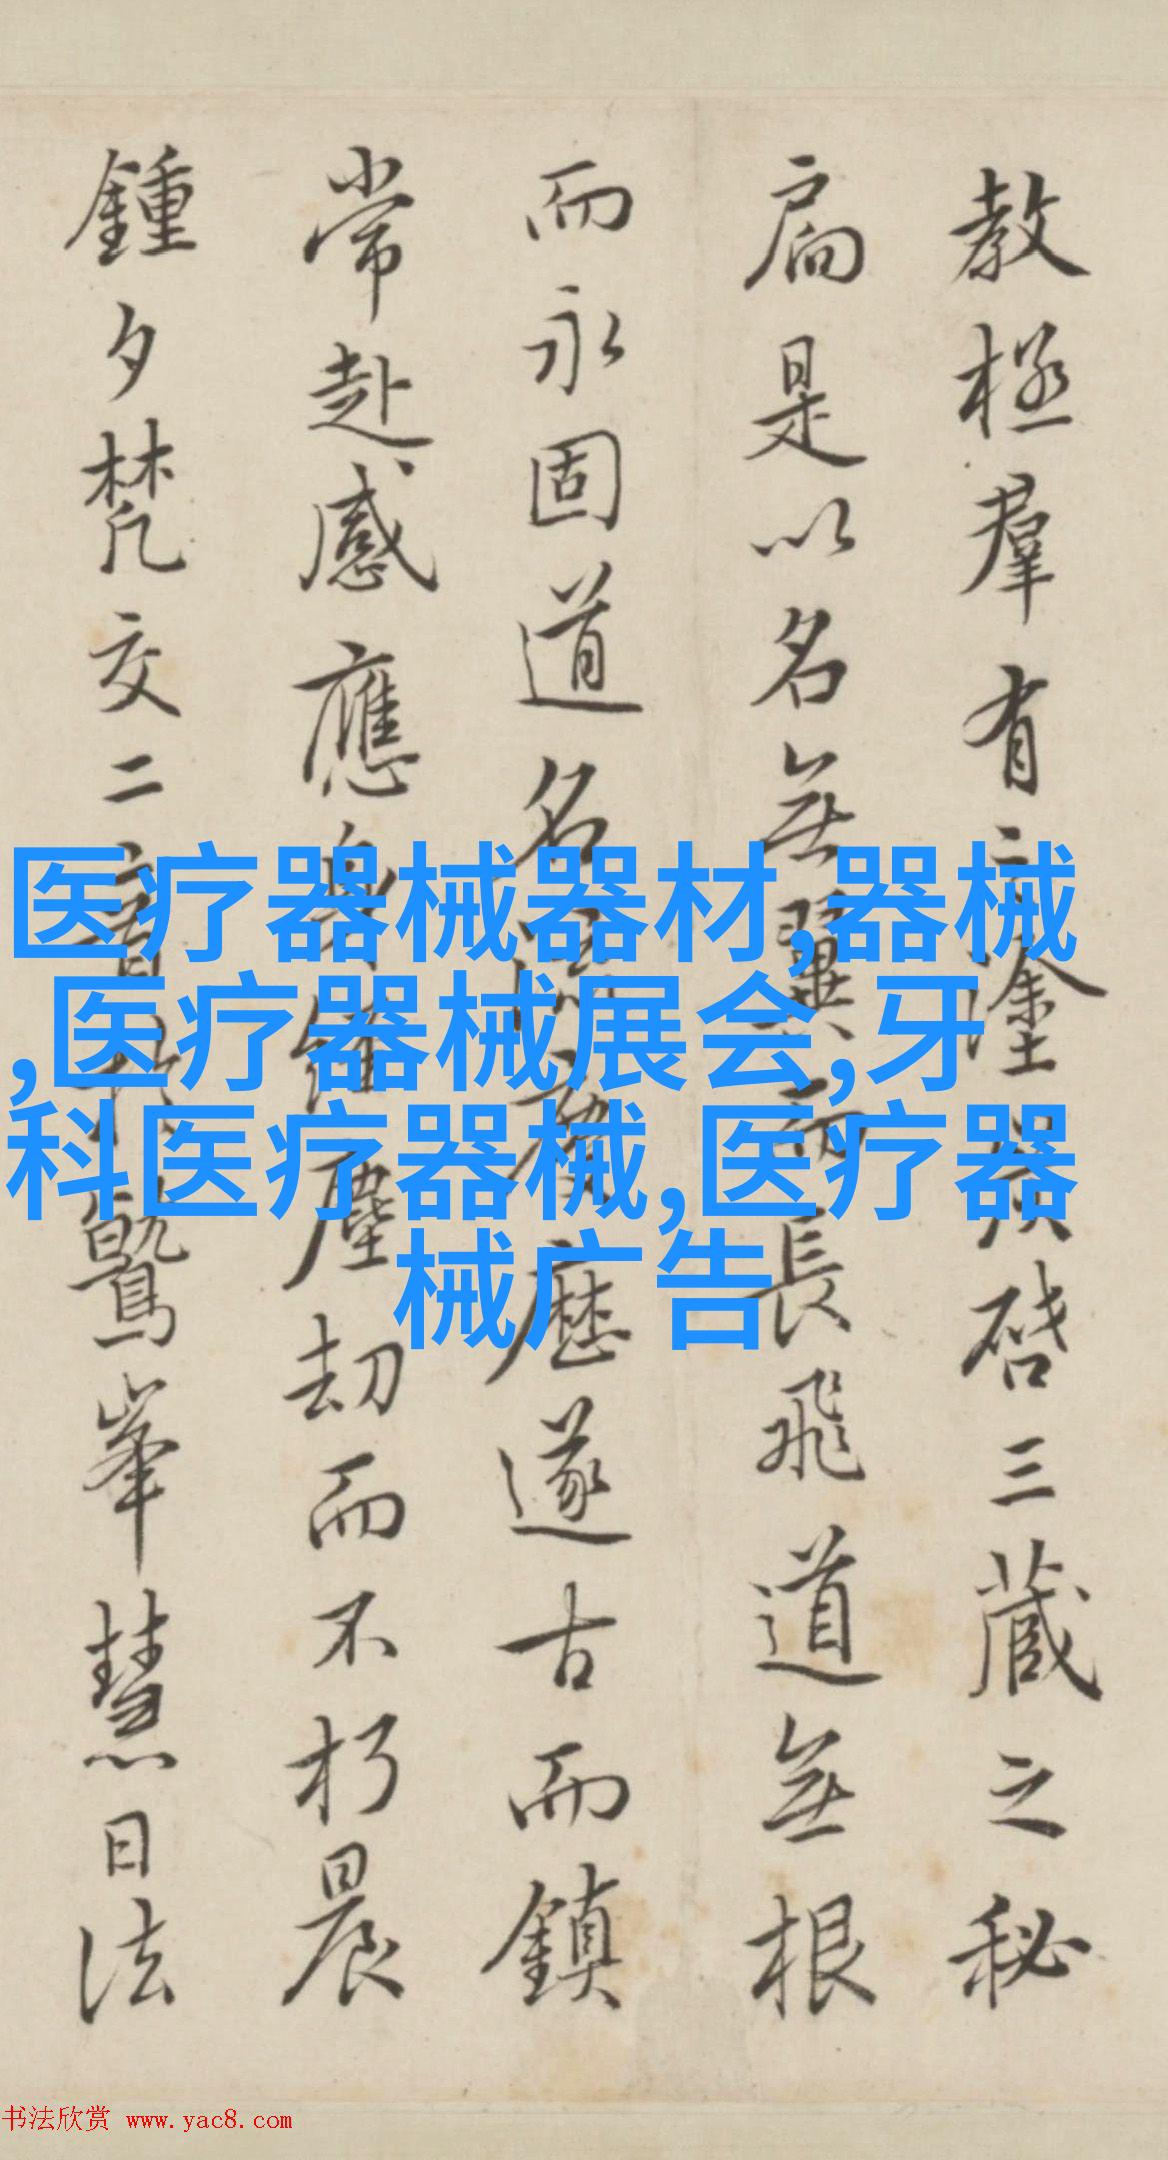 教拯羣有之塗炭啓三藏之秘
扃是以名無翼而長飛道無根
而永固道名流慶歷遂古而鎮
常赴感應身經塵劫而不朽晨
鍾夕梵交二音於鷲峯慧日法
医疗器械器材,器械
,医疗器械展会,牙
科医疗器械,医疗器
械广告
书法欣赏 www.yac8.com